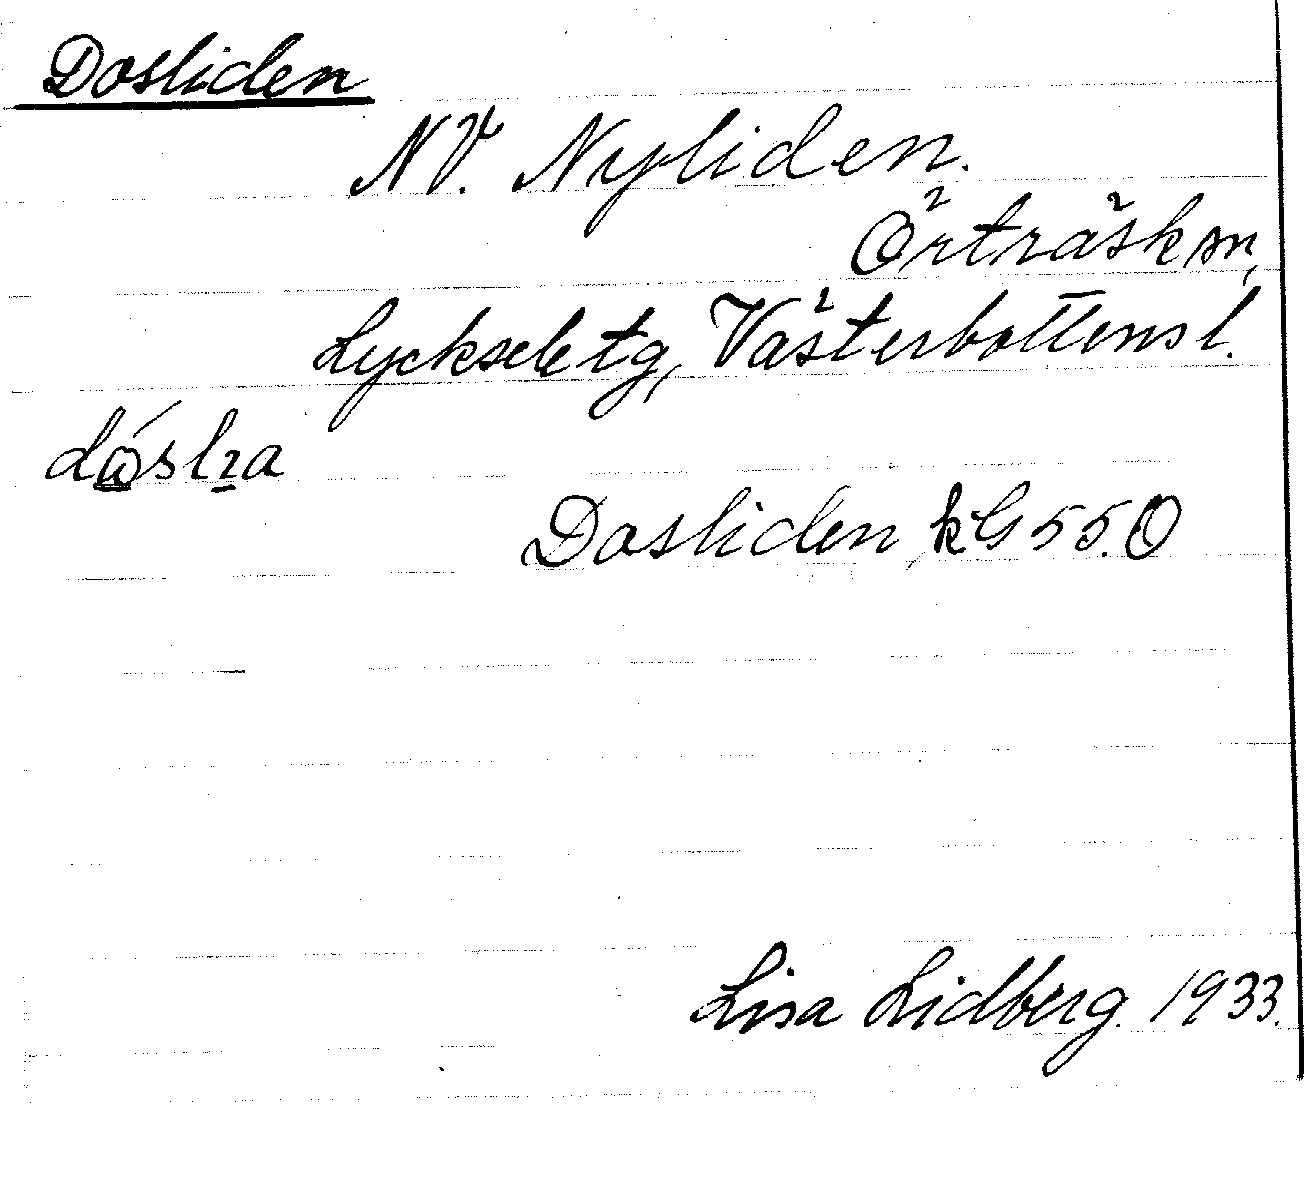 Dosliden
NV. Nyliden.
Örträsk sn,
Lycksele tg, Västerbottens l.
Dosliden, kG 55.O
Lisa Lidberg. 1933.